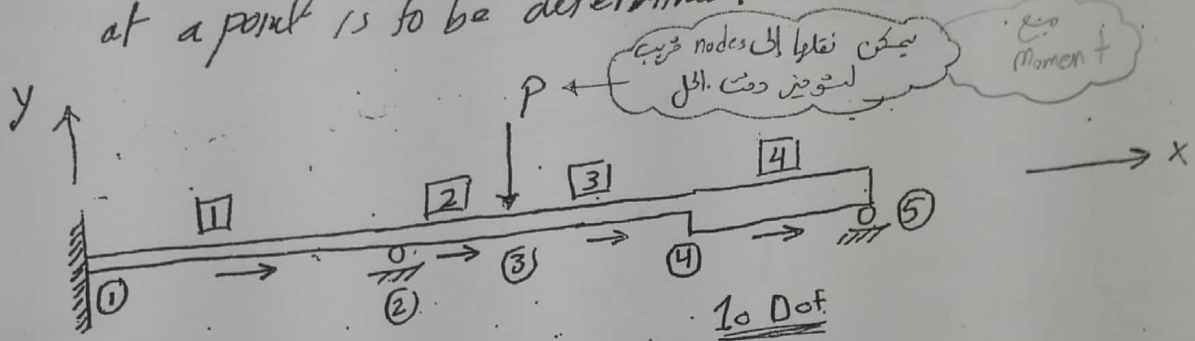 at a point is to be
يمكن نقلها إلى nodes قريب
لتوفير وقت الحل
Moment
y
P
x
1
2
3
4
①
②
③
④
⑤
10 Dof